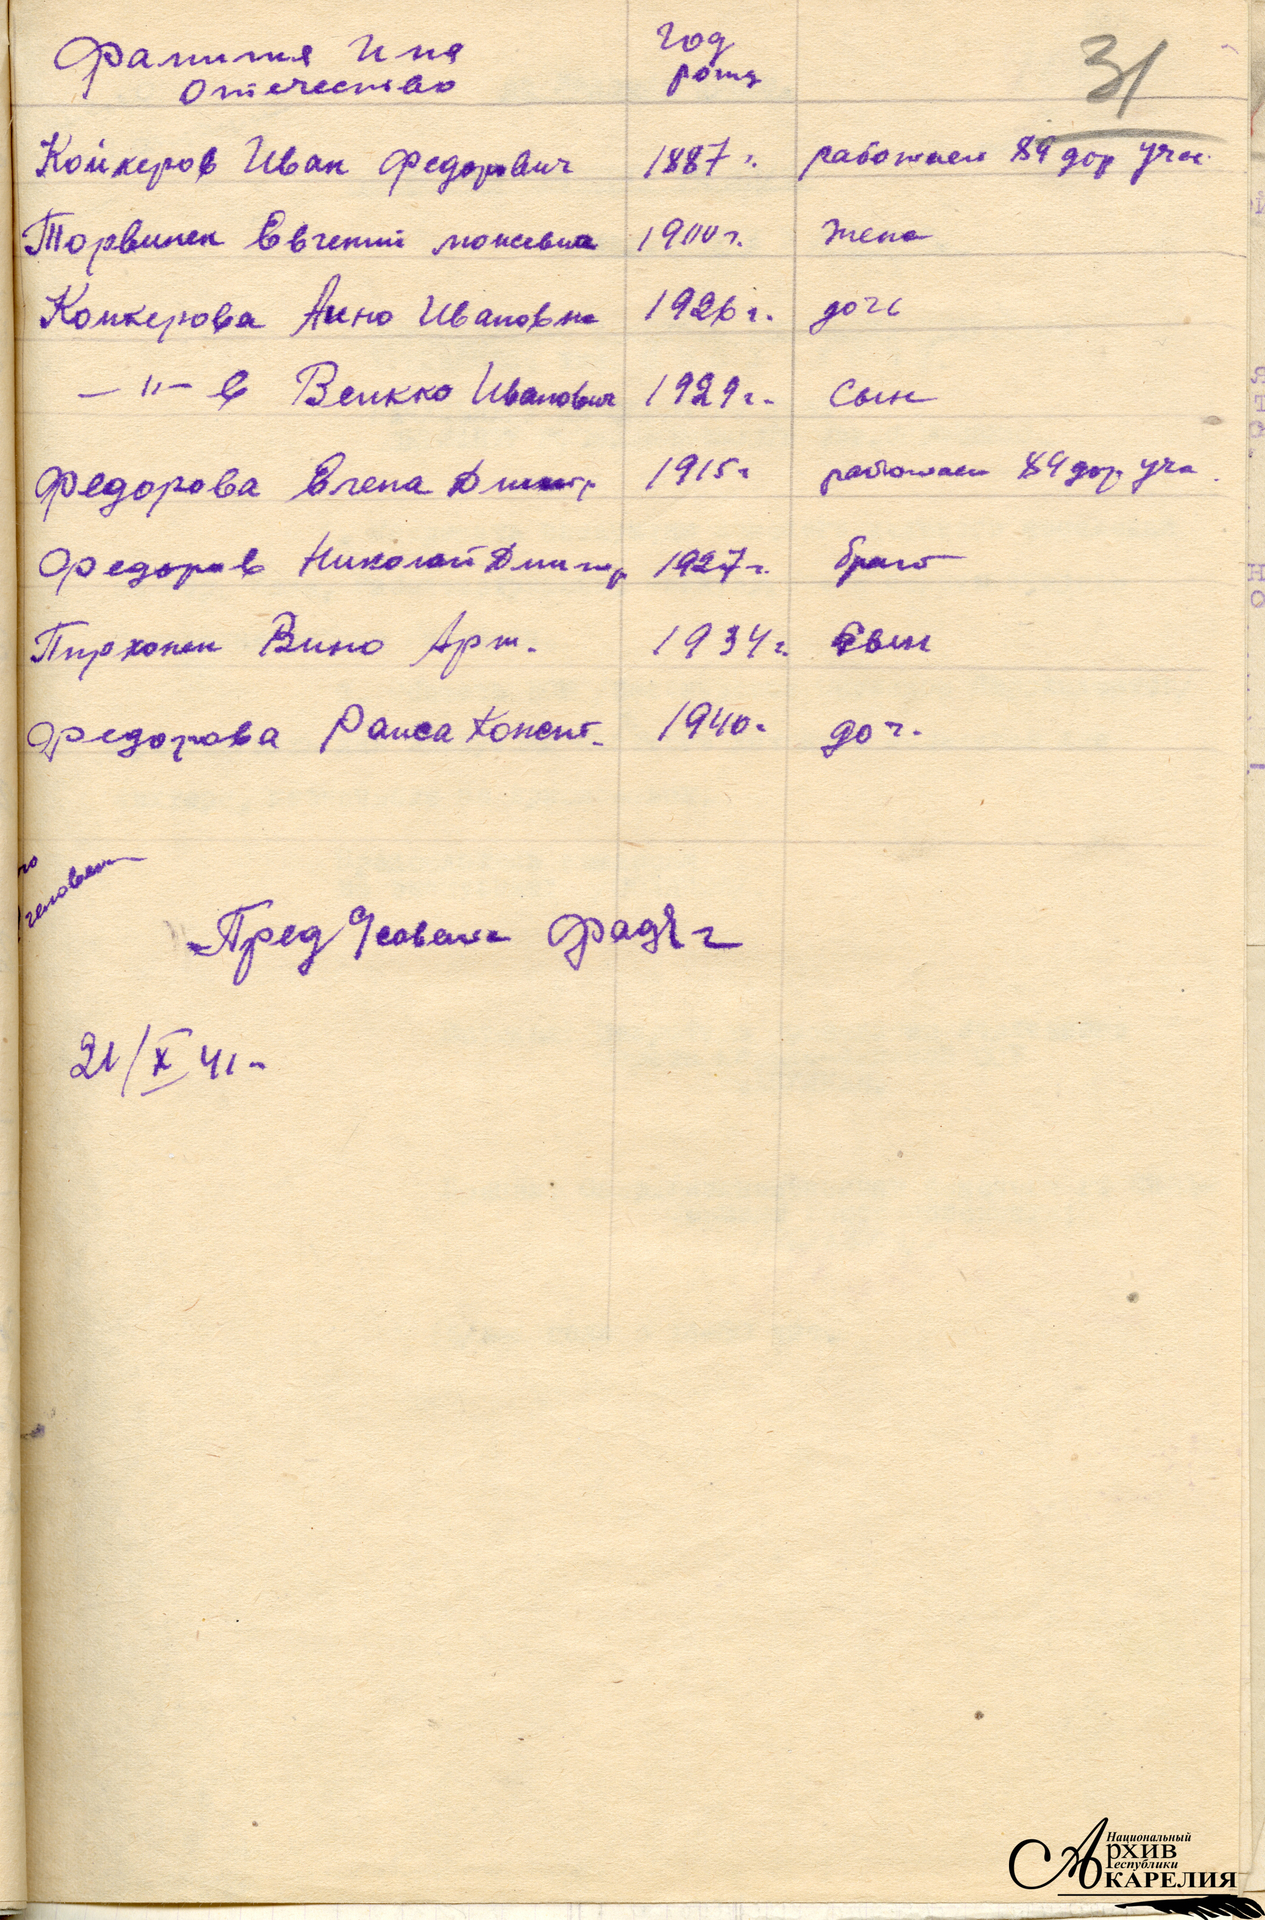 Фамилия Имя Год
Отечество рожд
31
Койкеров Иван Федорович 1887 г. работает 89 дор учас.
Торвинен Евгений 1900 г. жена
Койкерова Аино Ивановна 1926 г. дочь
— " — в Веикко Иванович 1929 г. сын
Федорова Елена Дмитр 1915 г работает 89 дор уча
Федоров Николай Дмитр 1927 г. брат
Пирхонен Вино Арт. 1934 г. сын
Федорова Раиса Конст. 1940 г. доч.
человек
Пред
21/X 41 г
Национальный
Архив
Республики
КАРЕЛИЯ